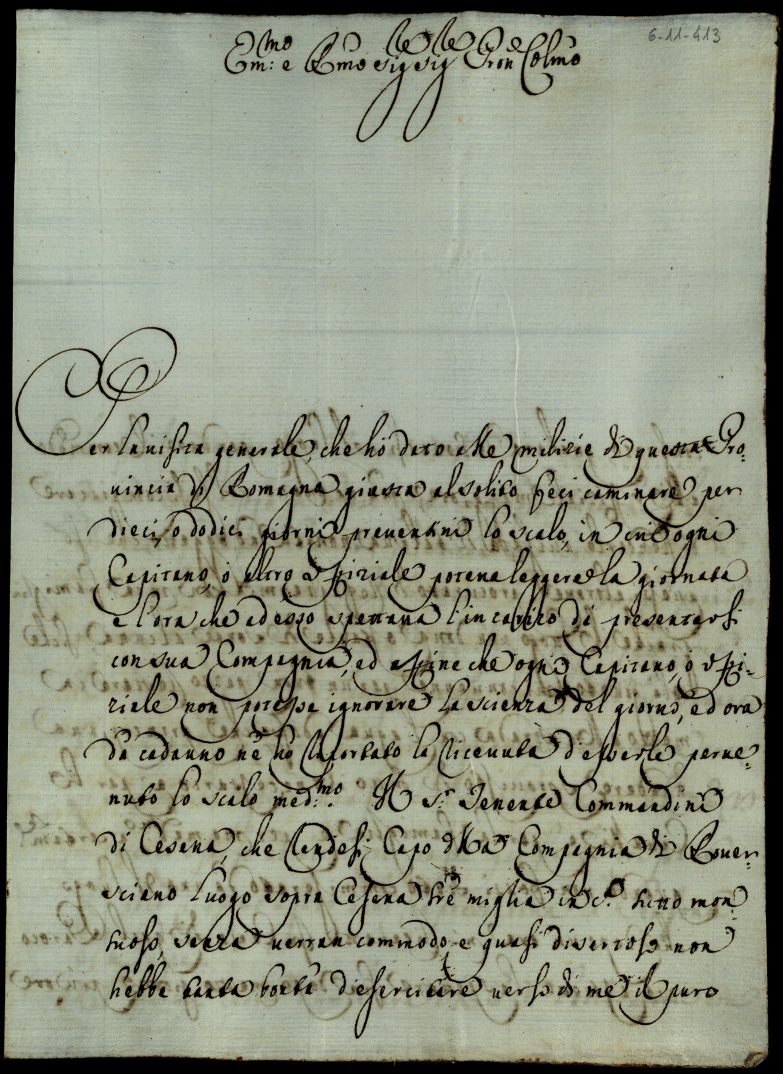 6-11-413
Em:mo e Rmo Sig Sig Pron Colmo
Per la visita generale, che hò dato alle milizie di questa Pro-
vincia di Romagna giusta al solito feci caminare per
dieci, o dodici giorni preventivi lo scalo, in cui ogni
Capitano, ò altro Offiziale poteva leggere la giornata
e l'ora che ad esso spettava l'incarico di presentarsi
con sua Compagnia, ed affine che ogni Capitano, ò Offi-
ziale non potesse ignorare la scienza del giorno, ed ora
da cadauno nè hò riportato la ricevuta d'esserle perve-
nuto lo scalo med:mo. Il Sr. Tenente Commandini
di Cesena, che rendesi Capo della Compagnia di Rover-
sciano luogo sopra Cesena trè miglia in ca. tutto mon
tuoso, senza verran commodo e quasi disastroso non
hebbe tanta bontà d'esercitare verso di me il puro